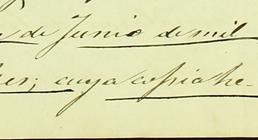 de Junio de mil
cuya copia he-